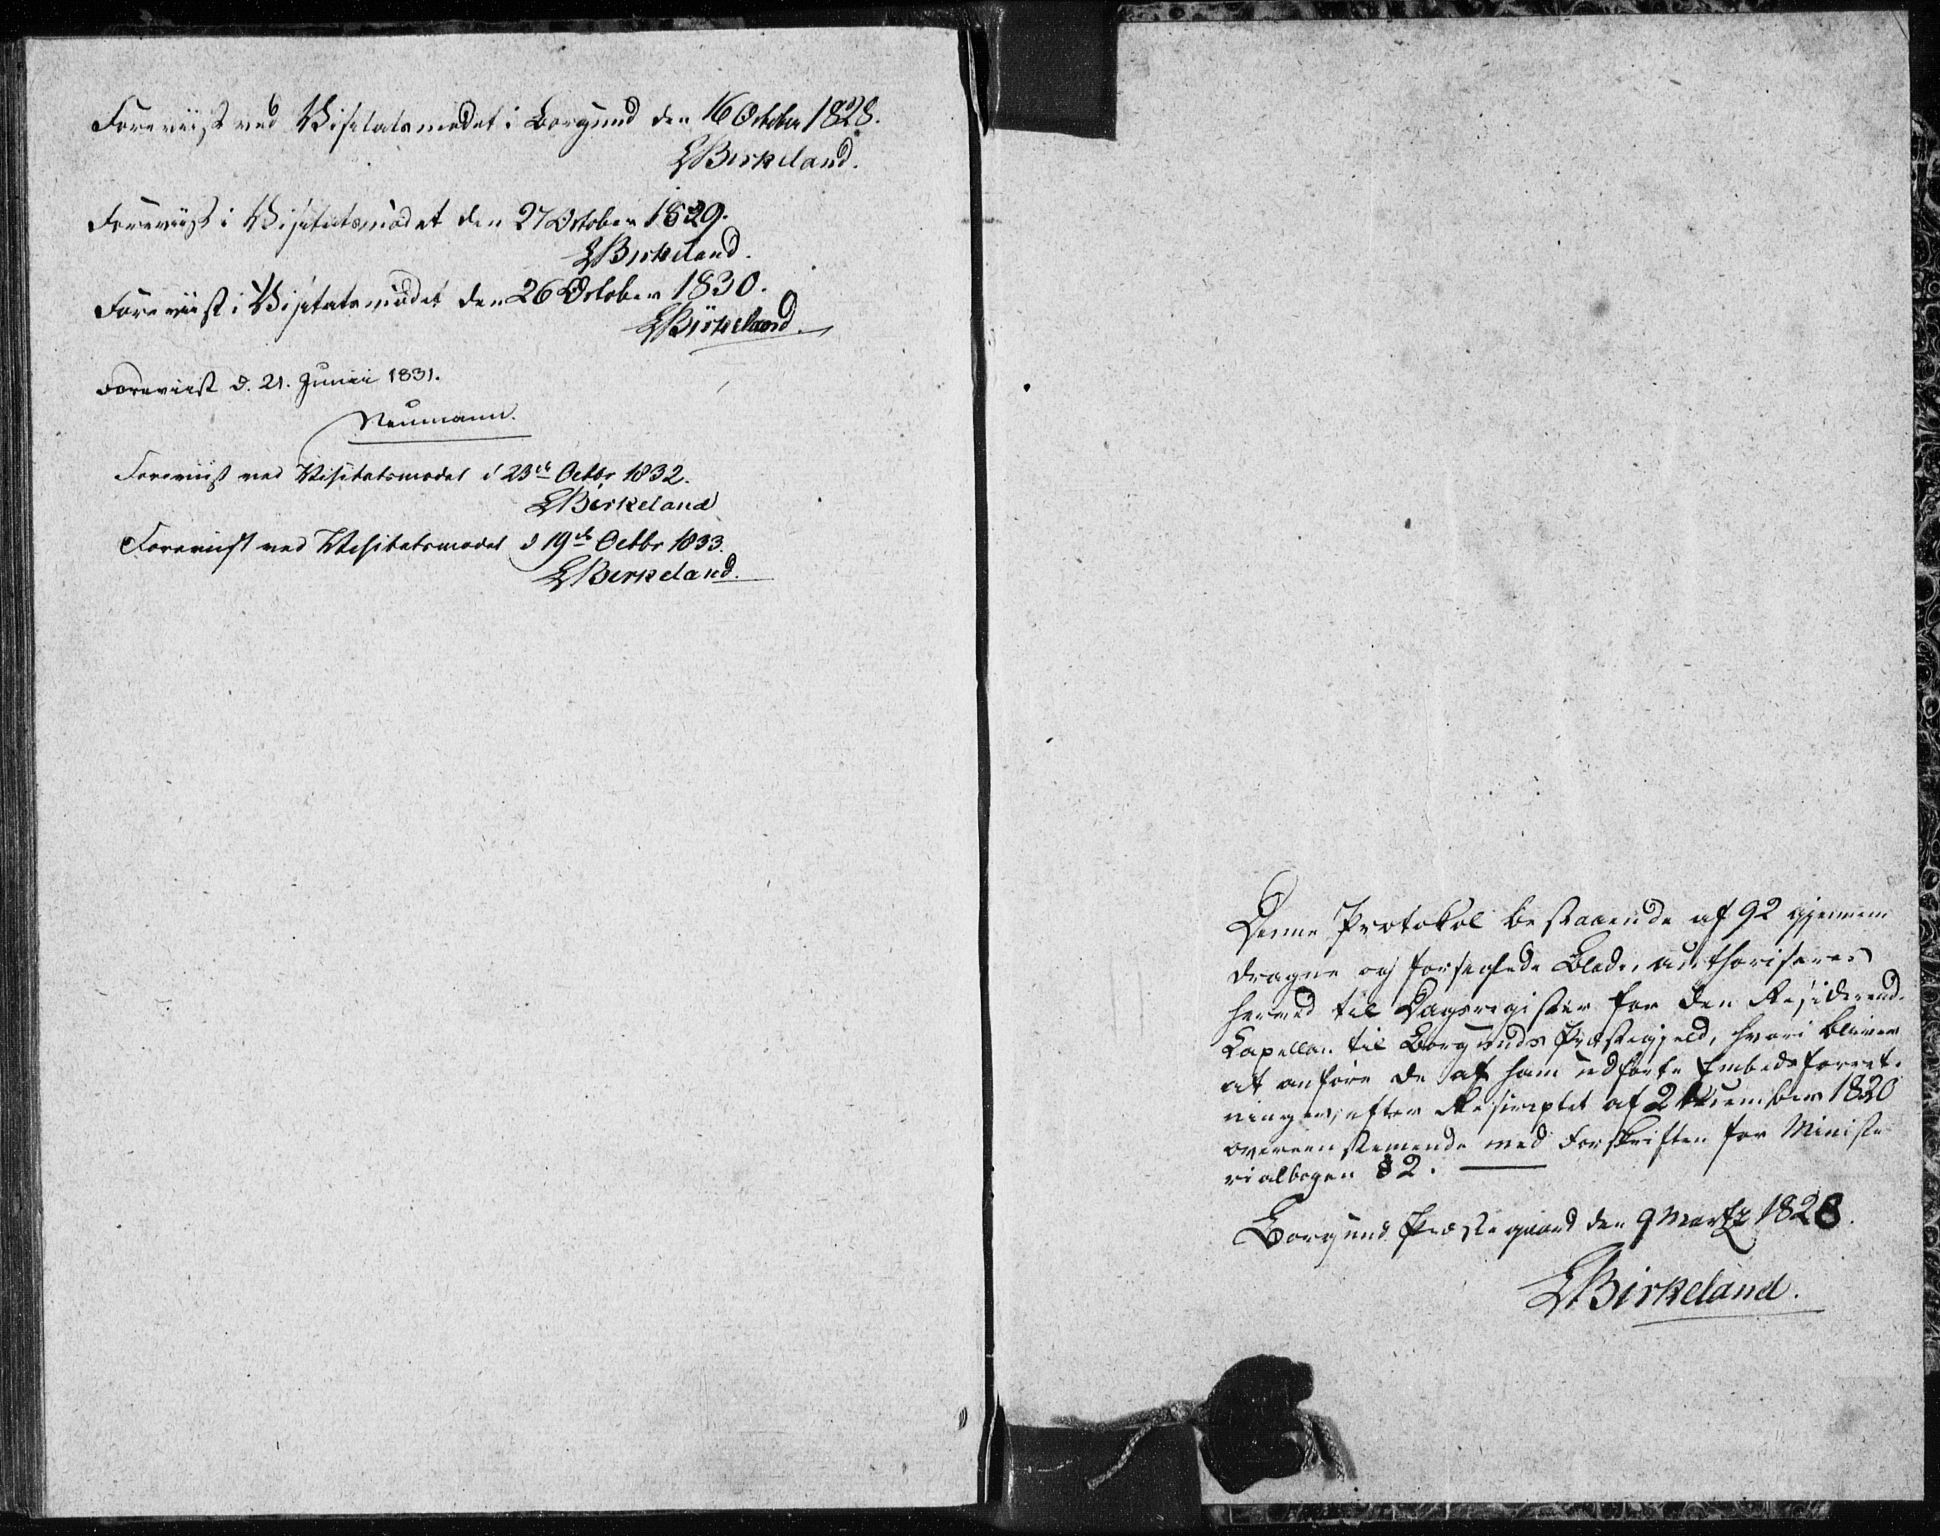 Foreviist ved Visitatsmødet i Borgund den 16 October 1828.
LBirkeland.
Foreviist i Visitatsmødet den 27 October 1829.
LBirkeland.
Foreviist i Visitatsmødet den 26 October 1830.
LBirkeland.
Foreviist d. 21. Junii 1831.
Neumann.
Foreviist ved Visitatsmødet d 23de Octbr 1832.
LBirkeland
Foreviist ved Visitatsmødet d 19de Octbr 1833.
LBirkeland.
Denne Protokol bestaaende af 92 gjennem
dragne og forseglede Blade, authoriseres
herved til Dagsregister for den Residerende
Capellan til Borgunds Præstegjeld, hvori bliver
at anføre de af ham udførte Embedsforret-
ninger, efter Rescriptet af 2 December 1820
overeenstemmende med Forskriften for Ministe
rialbogen § 2.
Borgund Præstegaard den 9 Martz 1828.
LBirkeland.